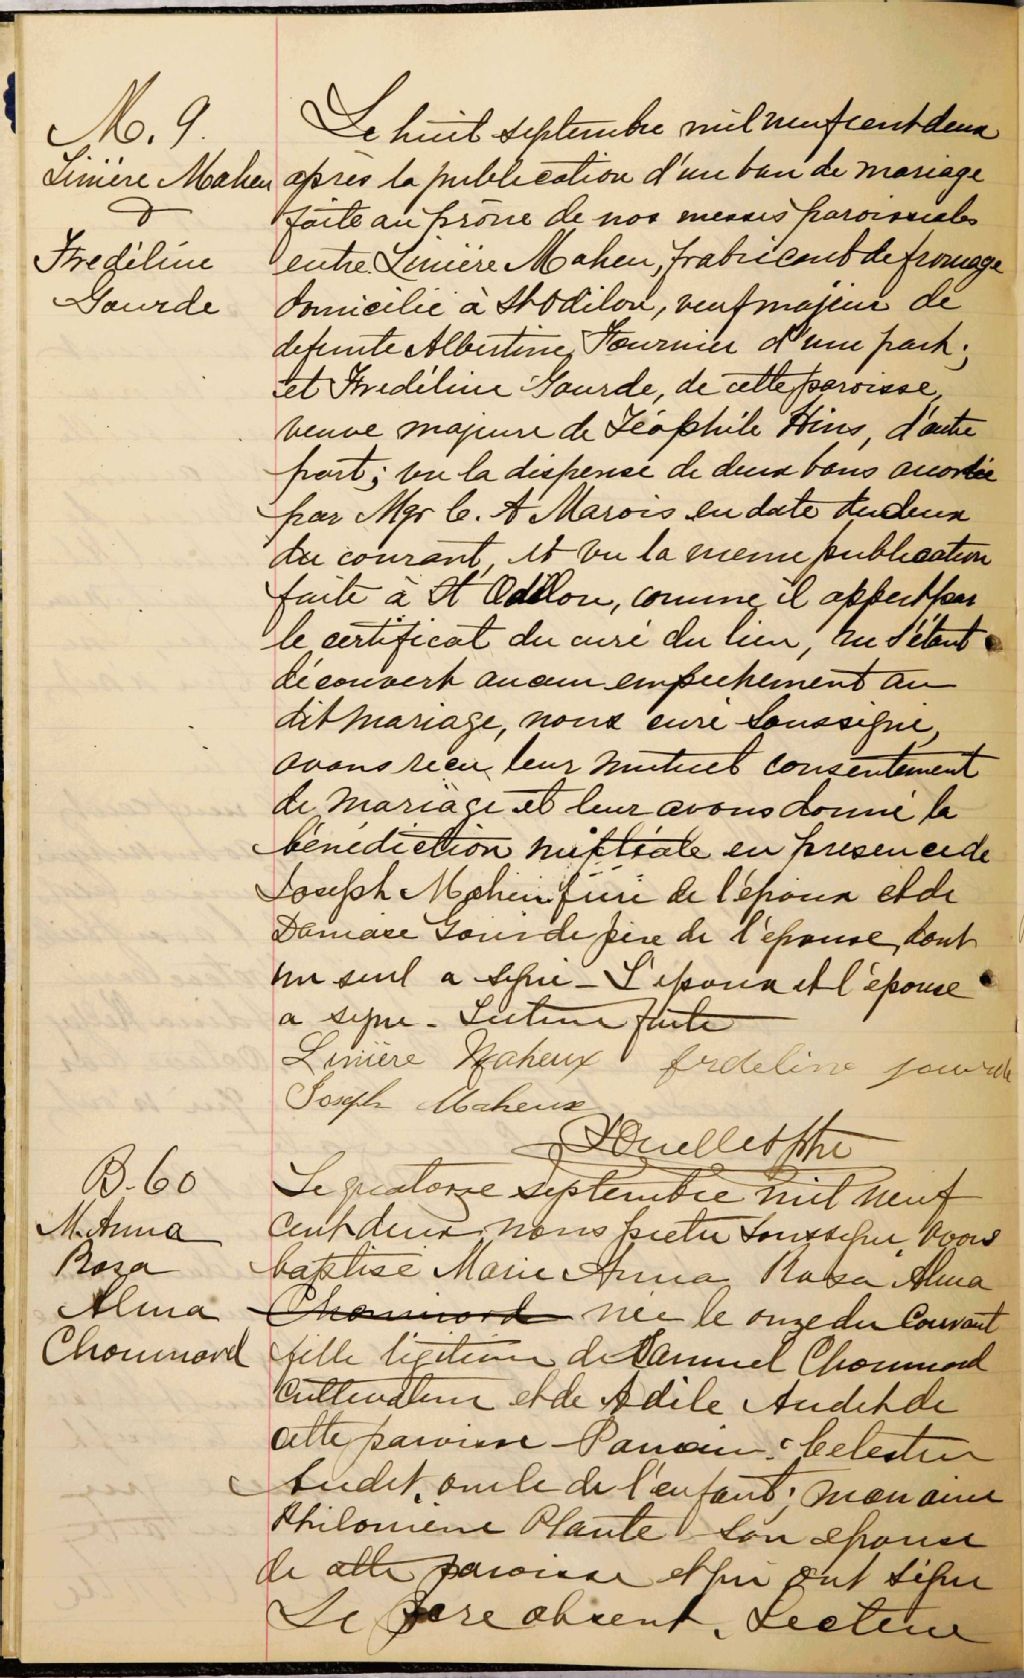 M. 9.
Linière Maheu
&
Fredéline
Gourde
Le huit septembre mil neuf cent deux
après la publication d'un ban de mariage
faite au prône de nos messes paroissiales
entre Linière Maheu, frabricant de fromage
domicilié à St Odilon, veuf majeur de
defunte Albertine Fournier d'une part;
et Fredéline Gourde, de cette paroisse,
veuve majeure de Téophile Hins, d'autre
part; vu la dispense de deux bans accordée
par Mgr C. A Marois en date du deux
du courant, et vu la meme publication
faite à St Odilon, comme il appert par
le certificat du curé du lieu, ne s'étant
découvert aucun empechement au
dit mariage, nous curé soussigné,
avons recu leur mutuel consentement
de mariage et leur avons donné la
bénédiction nuptiale en presence de
Joseph Maheu frère de l'époux et de
Damase Gourde père de l'épouse, dont
un seul a signé - L'epoux et l'épouse
a signé - Lecture faite
Linière Maheux fredeline gourde
Joseph Maheux
Ouellet Ptre
B. 60
M. Anna
Roza
Alma
Chouinard
Le quatorze septembre mil neuf
cent deux, nous pretre soussigné, avons
baptisé Marie Anna Rosa Alma
Chouinard née le onze du courant
fille légitime de Samuel Chouinard
cultivateur et de Adile Audet de
cette paroisse - Parrain: Celestin
Audet, oncle de l'enfant; marraine
Philomène Plante son epouse
de cette paroisse et qui ont signé
Le Père absent. Lecture